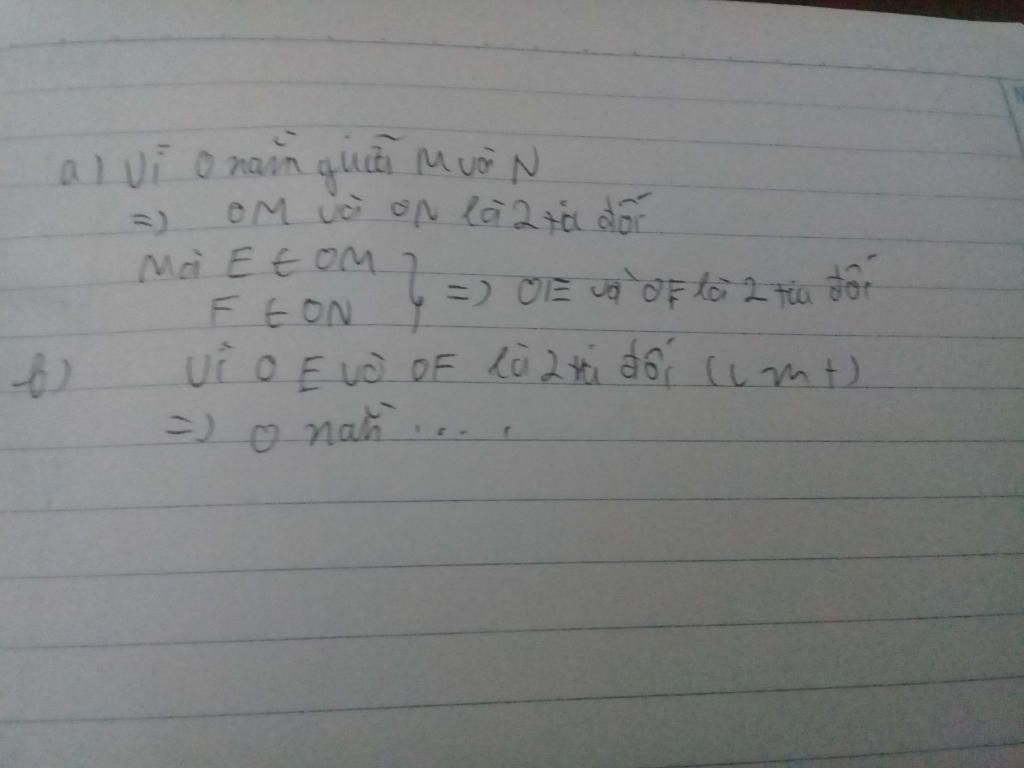 a) Vì O nằm giữa M và N
=> OM và ON là 2 tia đối
Mà E ∈ OM
F ∈ ON } => OE và OF là 2 tia đối
b) Vì OE và OF là 2 tia đối (cmt)
=> O nằ .....